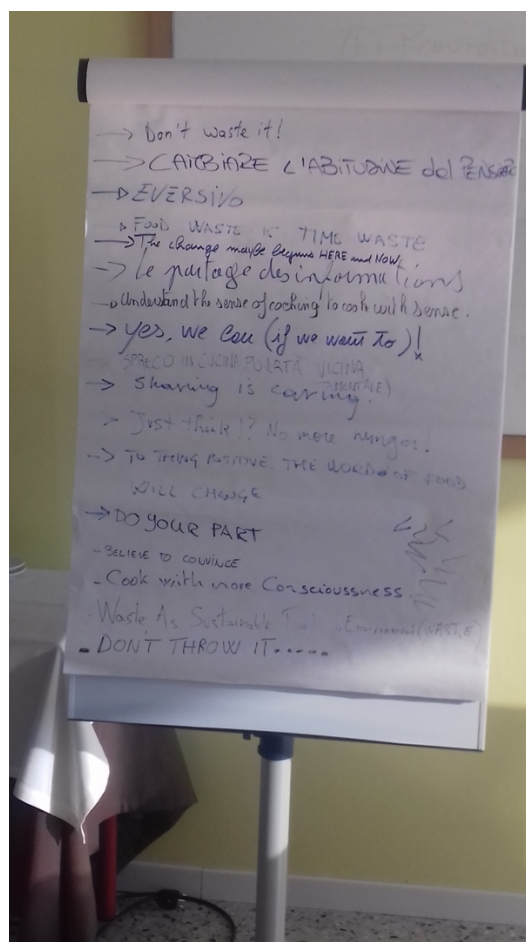 → Don't waste it!
→ CAMBIARE L'ABITUDINE del PENSIERO
→ EVERSIVO
→ FOOD WASTE IS TIME WASTE
→ The change maybe begins HERE and NOW
→ le partage des informations
→ Understand the sense of coching to cook with sense.
→ yes, we can (if we want to)!
SPRECO IN CUCINA, POVERTÀ VICINA
(MENTALE)
→ Sharing is caring!
→ Just think!? No more hunger!
→ TO THING POSITIVE. THE WORD OF FOOD
WILL CHANGE
→ DO YOUR PART
- BELIEVE TO CONVINCE
- Cook with more Conscioussness.
- Waste As Sustainable Tool Environment (WASTE)
- DON'T THROW IT.....